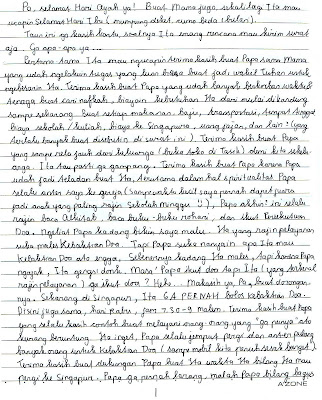 Pa, selamat Hari Ayah ya! Buat Mama juga, sekali lagi Ita mau
ucapin Selamat Hari Ibu (mumpung deket cuma beda 1 bulan).
Taun ini ga kasih kartu, soalnya Ita emang rencana mau kirim surat
aja. Ga apa-apa ya...
Pertama-tama Ita mau ngucapin terima kasih buat Papa sama Mama
yang udah ngelakuin tugas yang luar biasa buat jadi wakil Tuhan untuk
ngebesarin Ita. Terima kasih buat Papa yang udah banyak berkorban waktu &
tenaga buat cari nafkah, biayain kebutuhan Ita dari mulai di kandung
sampe sekarang. Buat setiap makanan, baju, transportasi, tempat tinggal
biaya sekolah / kuliah, biaya ke Singapura, uang jajan, dan lain² (yang
terlalu banyak buat disebutin di surat ini). Terima kasih buat Papa
yang sampe rela jauh dari keluarga (buka toko di Tasik) demi kita sekeluarga
. Ita tau pasti ga gampang. Terima kasih buat Papa karena Papa
udah jadi teladan buat Ita, terutama dalam hal spiritualitas. Papa
selalu anter saya ke gereja (sampe waktu kecil saya pernah dapet juara
jadi anak yang paling rajin Sekolah Minggu!!), Papa akhir² ini selalu
rajin baca Alkitab, baca buku-buku rohani, dan ikut Persekutuan
Doa. Ngeliat Papa kadang bikin saya malu. Ita yang rajin pelayanan
suka males Kebaktian Doa. Tapi Papa suka nanyain apa Ita mau
Kebaktian Doa ato engga. Sebenernya kadang Ita males, tapi karena Papa
ngajak, Ita gengsi donk. Masa' Papa ikut doa tapi Ita (yang terkenal
rajin pelayanan) ga ikut doa? Hehe... Makasih ya, Pa, buat dorongan
nya. Sekarang di Singapur, Ita GA PERNAH bolos Kebaktian Doa.
Disini juga sama, hari Rabu, jam 7.30-9 malem. Terima kasih buat Papa
yang selalu kasih contoh buat melayani orang-orang yang "ga punya" ato
kurang beruntung. Ita inget, Papa selalu jemput pergi dan anter pulang
banyak orang untuk Kebaktian Doa (sampe mobil kita penuh sesak banget).
Terima kasih buat dukungan Papa buat Ita waktu Ita bilang Ita mau
pergi ke Singapur. Papa ga pernah larang, malah Papa bilang bagus
AZONE
1